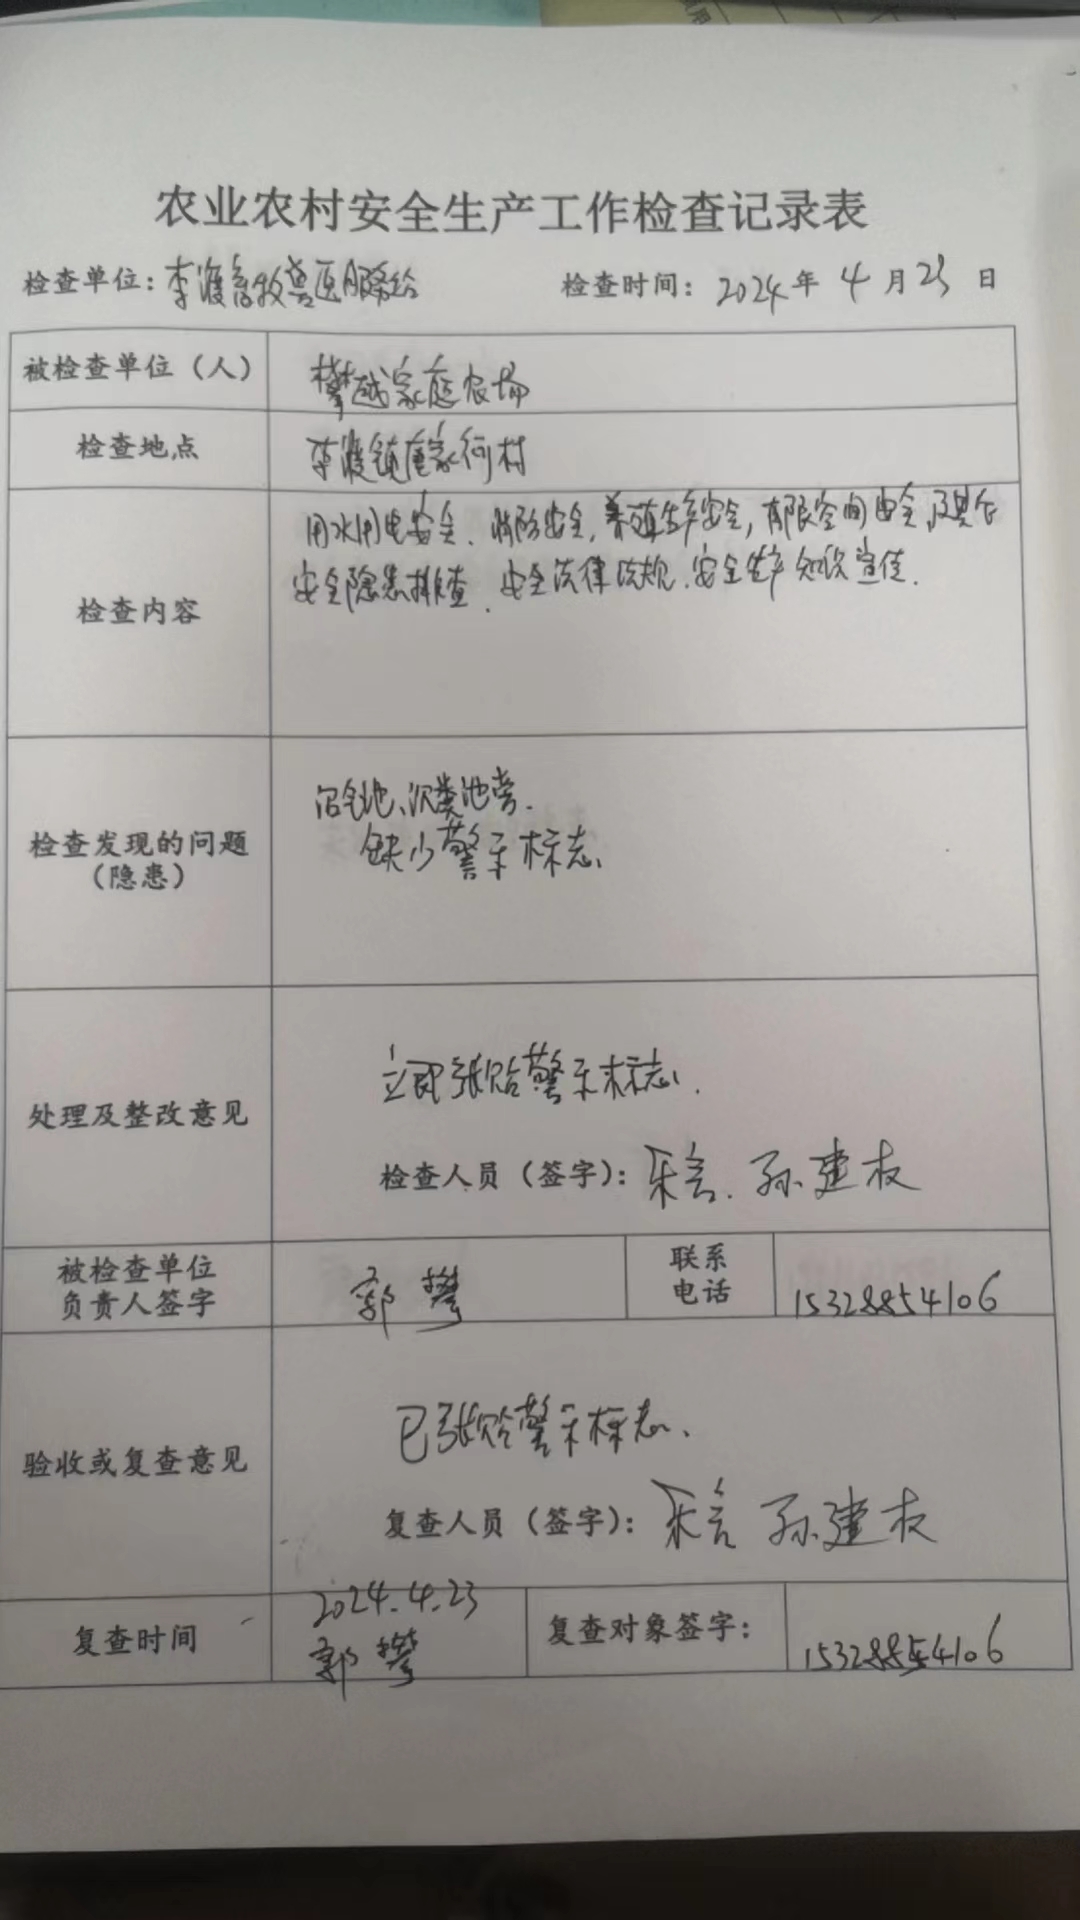 农业农村安全生产工作检查记录表
检查单位：李渡畜牧兽医服务站 检查时间：2024年4月23日
被检查单位（人） 攀越家庭农场
检查地点 李渡镇唐家河村
检查内容
用水用电安全、消防安全，养殖生产安全，有限空间安全，及其它
安全隐患排查、安全法律法规、安全生产知识宣传.
检查发现的问题
（隐患）
沼气池、沉粪池旁.
缺少警示标志、
处理及整改意见
立即张贴警示标志.
检查人员（签字）： 孙建权
被检查单位
负责人签字
郭攀
联系
电话
15328854106
验收或复查意见
已张贴警示标志、
复查人员（签字）： 孙建权
复查时间
2024.4.23
郭攀
复查对象签字：
15328854106